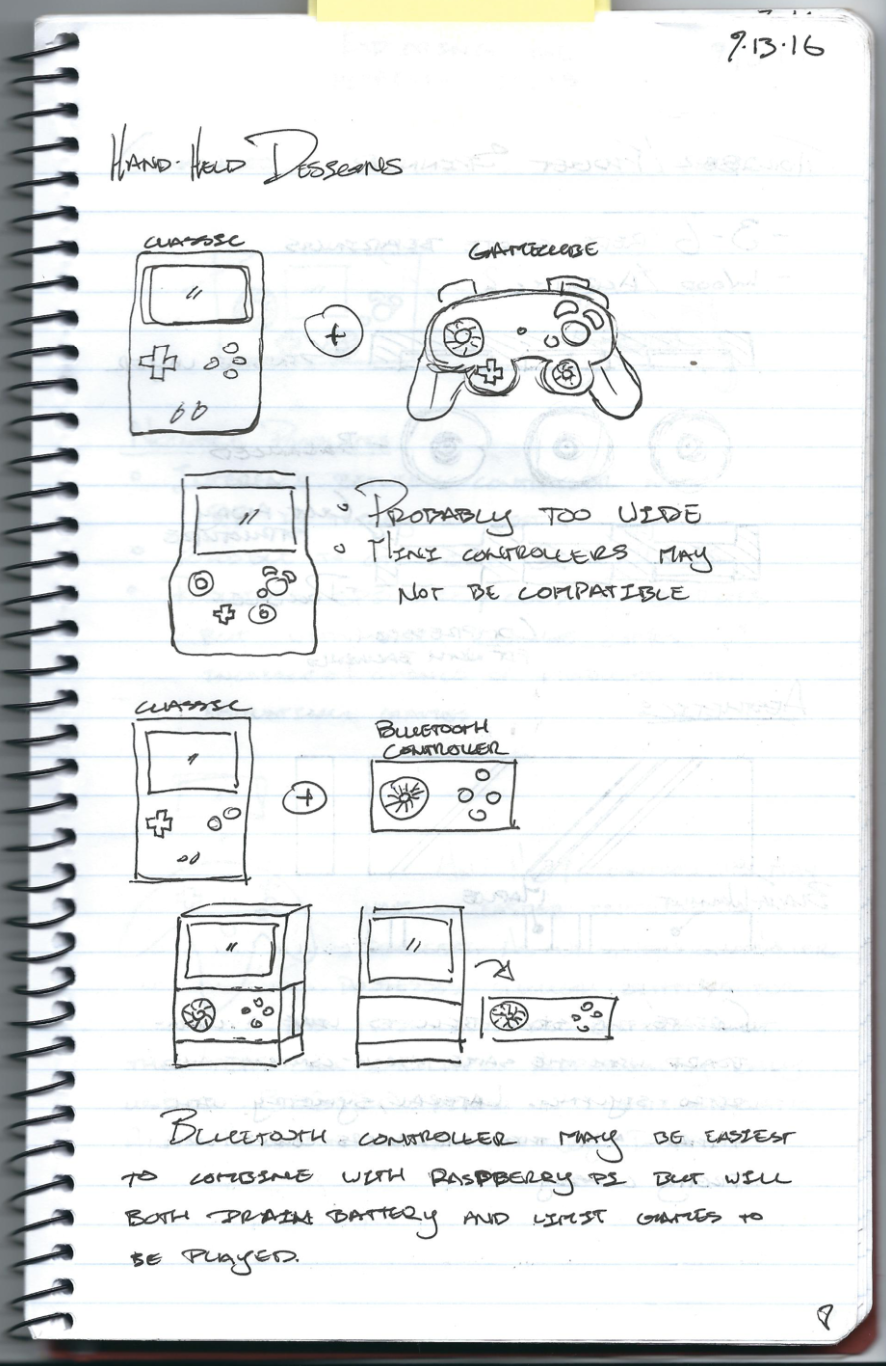 9.13.16
HAND-HELD DESSIGNS
CLASSIC
GAMECUBE
+
• PROBABLY TOO WIDE
• MINI CONTROLLERS MAY
NOT BE COMPATIBLE
CLASSIC
BLUETOOTH
CONTROLLER
+
BLUETOOTH CONTROLLER MAY BE EASIEST
TO COMBINE WITH RASPBERRY PI BUT WILL
BOTH DRAIN BATTERY AND LIMIT GAMES TO
BE PLAYED.